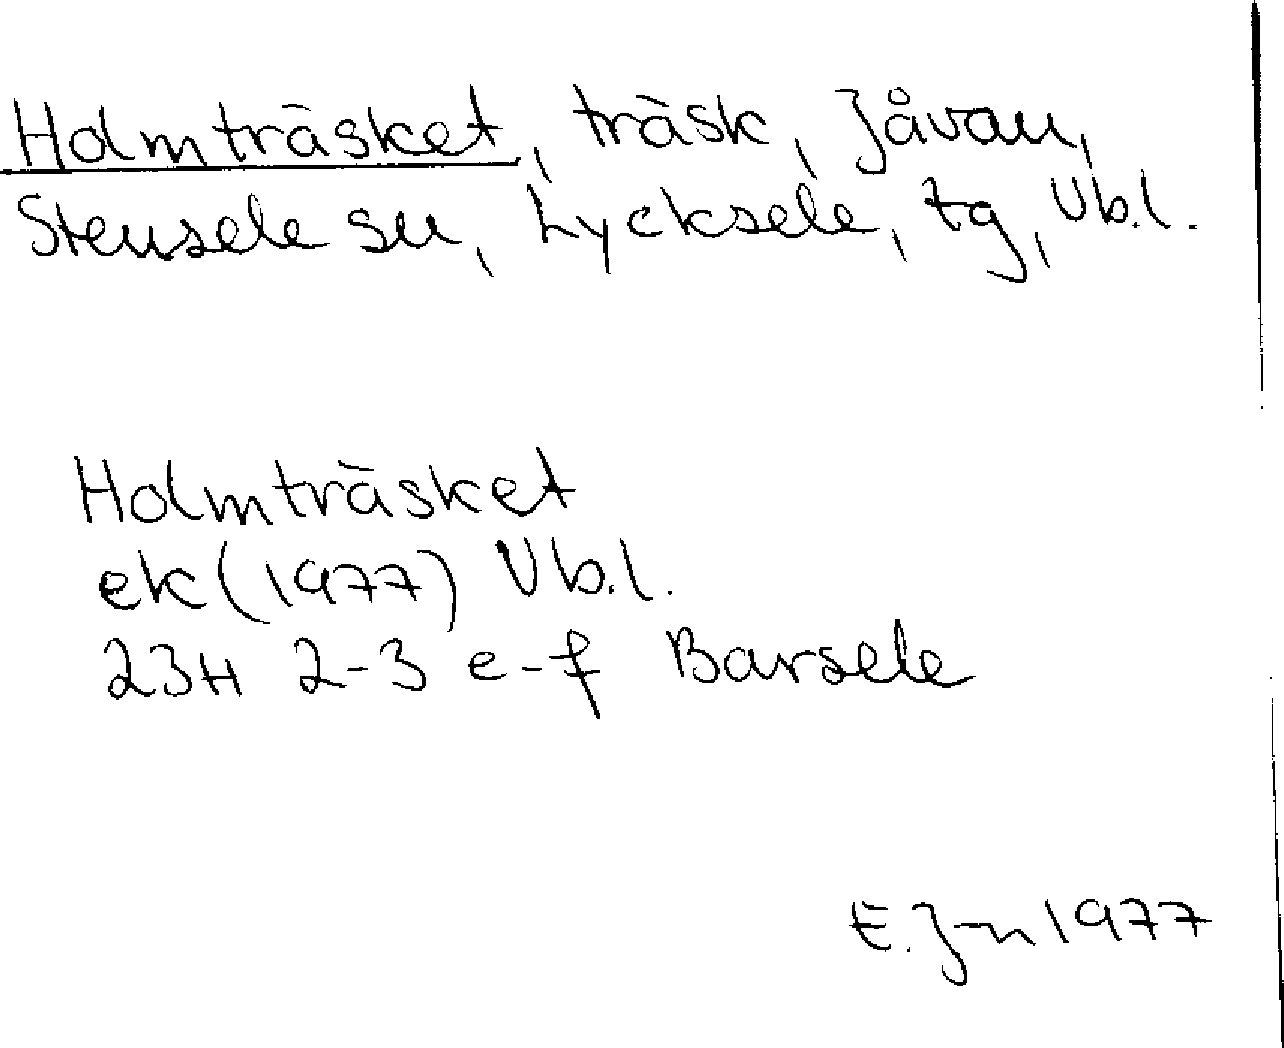 Holmträsket, träsk, Jåvan,
Stensele sn, Lycksele, tg, Vb.l.
Holmträsket
ek (1977) Vb.l.
23H 2-3 e-f Barsele
E. J-n 1977